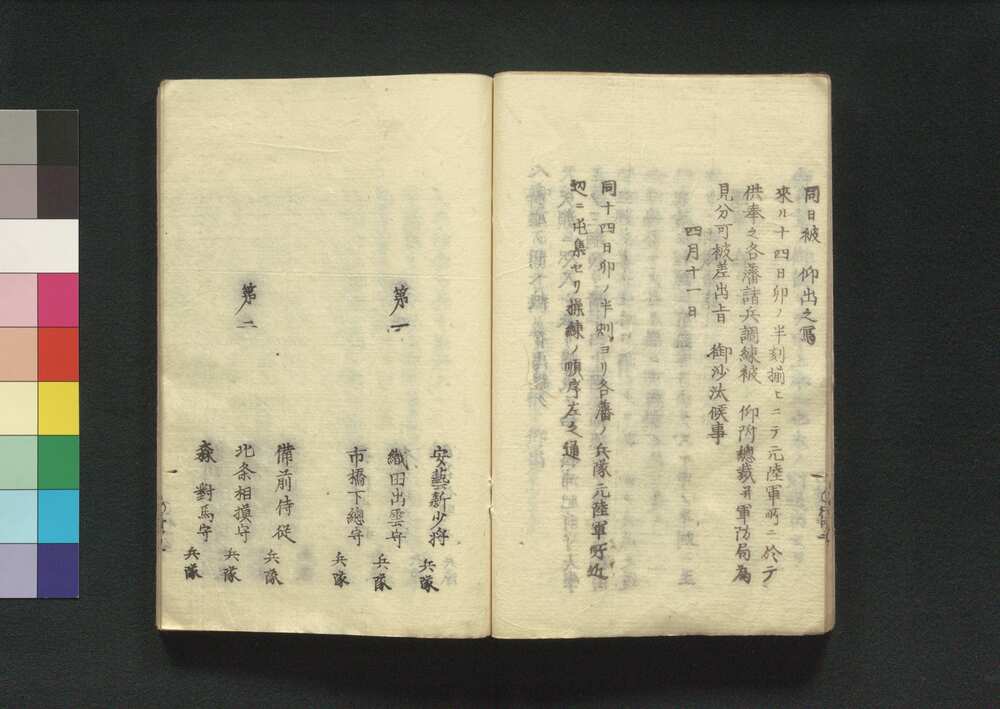 同日被　仰出之寫
來ル十四日卯ノ半刻揃ヒニテ元陸軍所ニ於テ
供奉之各藩諸兵調練被　仰付總裁并軍防局為
見分可被差出旨　御沙汰候事
四月十一日
同十四日卯ノ半刻ヨリ各藩ノ兵隊元陸軍所近
辺ニ屯集セリ操練ノ順序左之通
第一
安藝新少将　兵隊
織田出雲守　兵隊
市橋下總守　兵隊
第二
備前侍従　兵隊
北条相摸守　兵隊
森　對馬守　兵隊